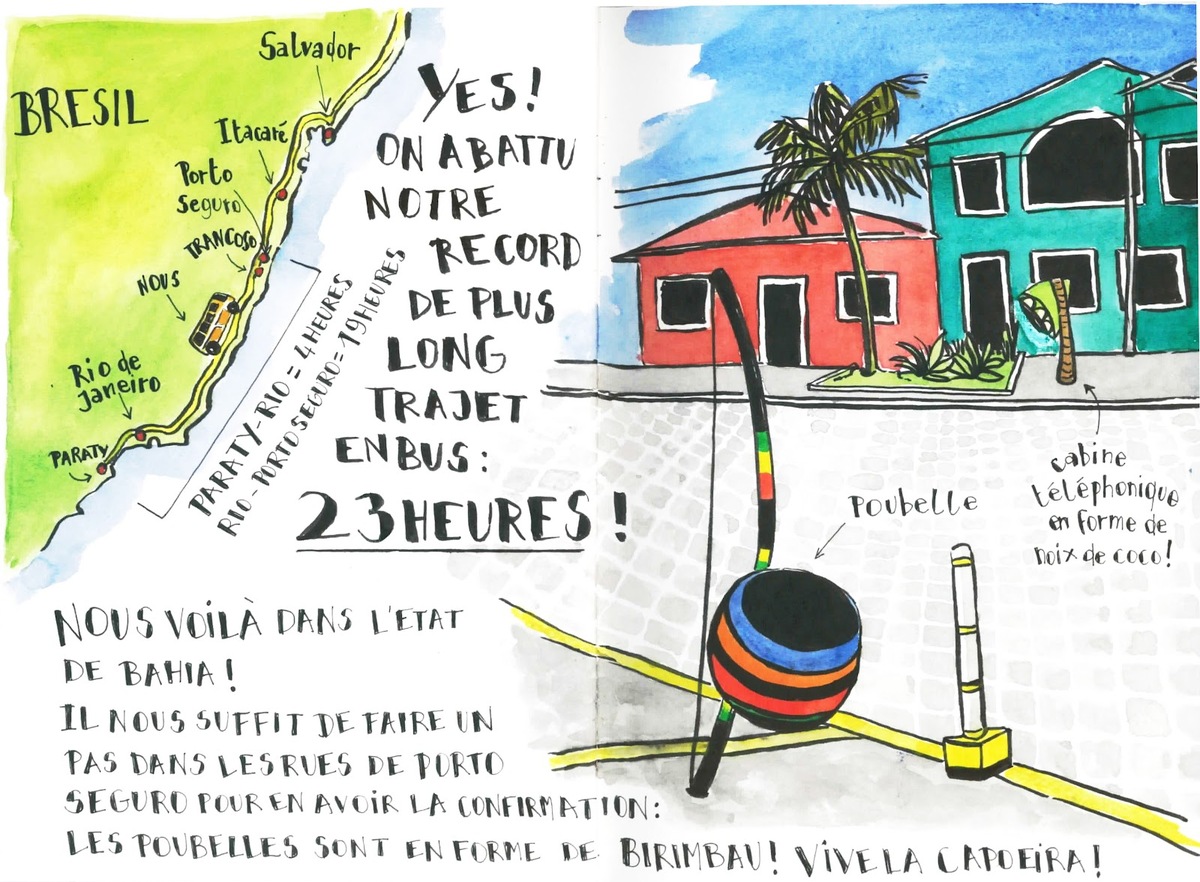 BRESIL
Salvador
Itacaré
Porto
Seguro
TRANCOSO
NOUS
Rio de
Janeiro
PARATY
PARATY-RIO = 4 HEURES
RIO-PORTO SEGURO = 19 HEURES
YES!
ON A BATTU
NOTRE
RECORD
DE PLUS
LONG
TRAJET
EN BUS:
23 HEURES !
NOUS VOILÀ DANS L'ETAT
DE BAHIA !
IL NOUS SUFFIT DE FAIRE UN
PAS DANS LES RUES DE PORTO
SEGURO POUR EN AVOIR LA CONFIRMATION:
LES POUBELLES SONT EN FORME DE BIRIMBAU! VIVE LA CAPOEIRA!
POUBELLE
cabine
téléphonique
en forme de
noix de coco!